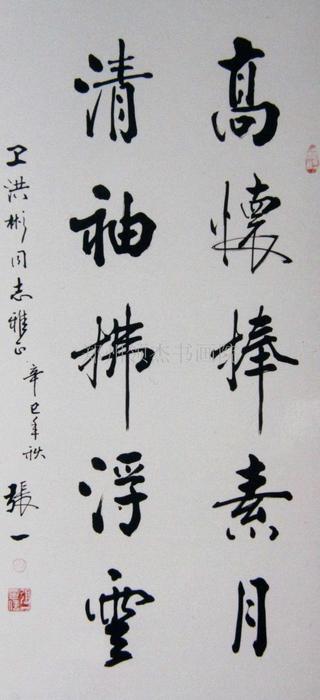 高懷捧素月
清袖拂浮雲
卫洪彬同志雅正
辛巳年秋 張一